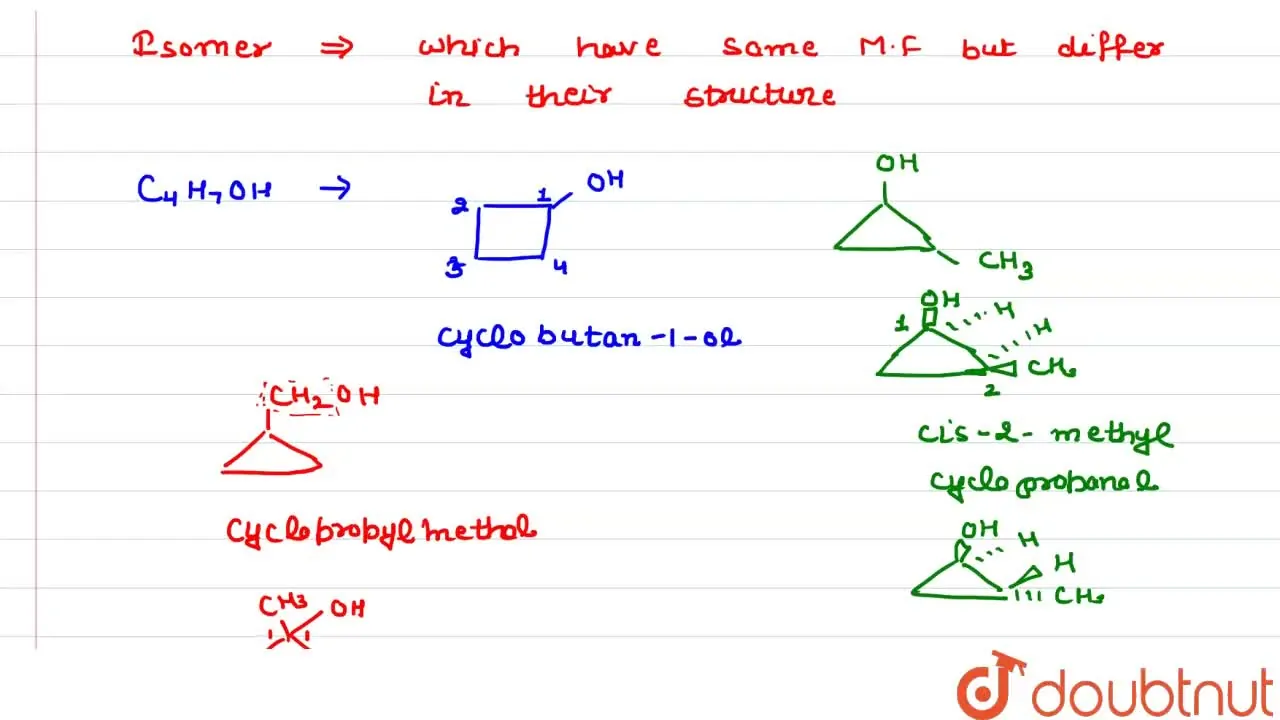 Isomer ⇒ which have same M.F but differ
in their structure
C4H7OH →
1
OH
2
3
4
cyclobutan-1-ol
OH
CH3
OH
H
H
1
CH3
2
cis-2-methyl
cyclopropanol
CH2OH
cyclopropylmethol
OH
H
H
CH3
CH3
OH
1
doubtnut